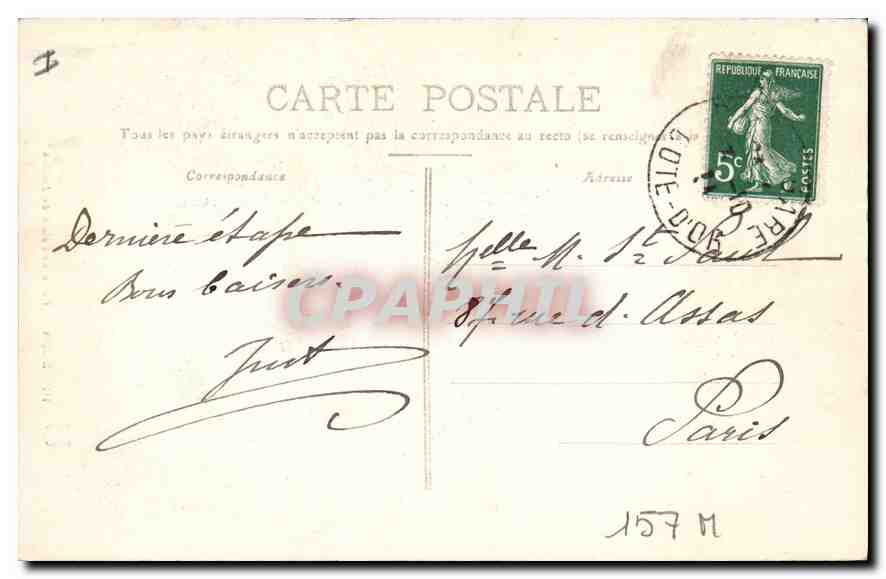 CARTE POSTALE
Tous les pays étrangers n'acceptent pas la correspondance au recto (se renseigner à la
Correspondance
Adresse
REPUBLIQUE FRANÇAISE
5c
POSTES
COTE-D'OR
Dernière étape
Bons baisers.
Just
Melle M. St Paul
87 rue d'Assas
Paris
CPAPHIL
157 M